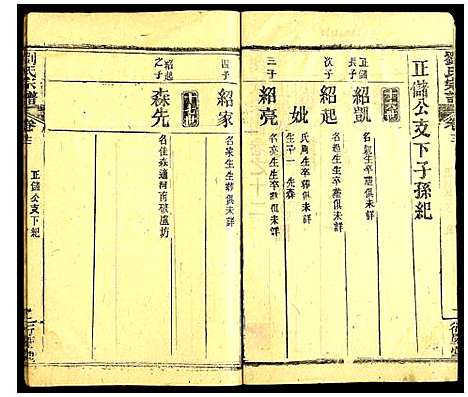 劉氏宗譜
卷
正儲公支下子孫紀
正儲
長子
紹凱
名凱生卒葬俱未詳
次子
紹起
名起生生卒葬俱未詳
妣
氏周生卒葬俱未詳
生子一 先森
三子
紹亮
名亮生生卒葬俱未詳
四子
紹家
名家生生卒葬俱未詳
紹起
之子
森先
名佳森遷河南
劉氏宗譜
卷
正儲公支下紀